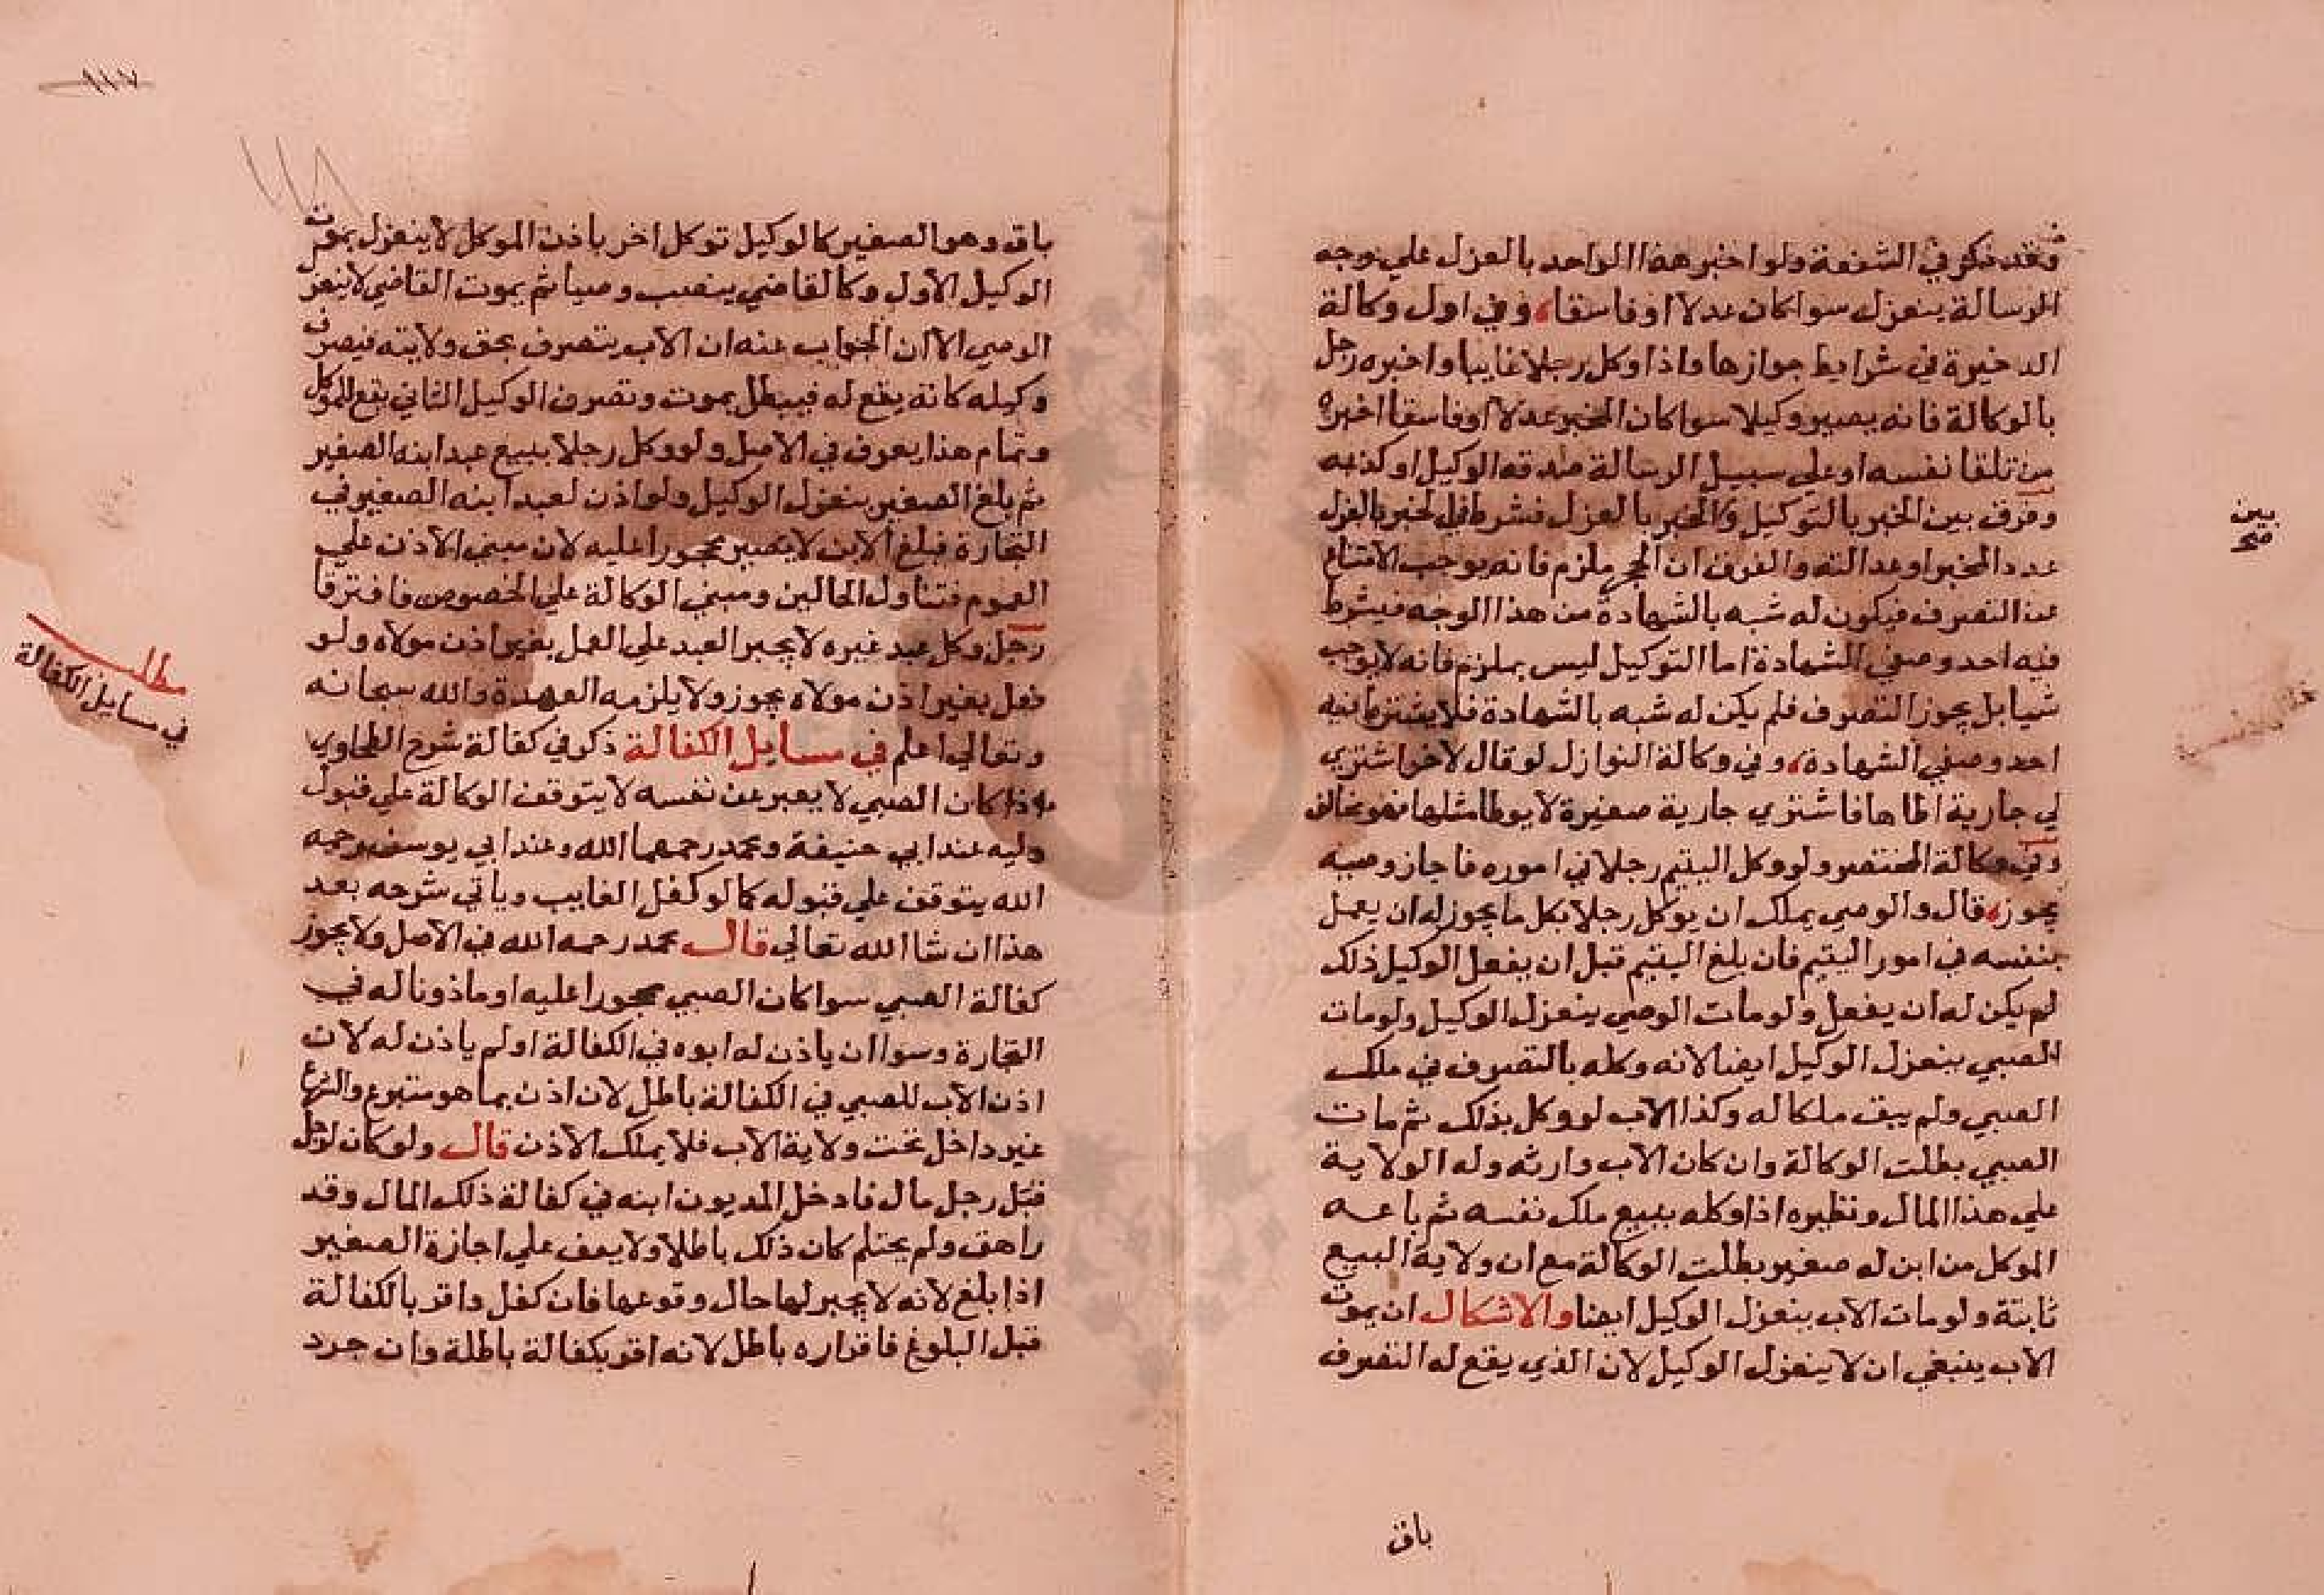 فقد ذكر في الشفعة ولو اخبر هذا الواحد بالعزل علي وجه
الرسالة ينعزل سوا كان عدلا او فاسقا وفي اول وكالة
الدخيرة في شرايط جوازها واذا وكل رجلا غايبا واخبره رجل
بالوكالة فانه يصير وكيلا سوا كان المخبر عدلا او فاسقا اخبره
من تلقا نفسه او علي سبيل الرسالة صدقه الوكيل او كذبه
وفرق بين الخبر بالتوكيل والخبر بالعزل فشرط في الخبر بالعزل
عدد المخبر او عدالته والفرق ان الحجر ملزم فانه يوجب الامتناع
عن التصرف فيكون له شبه بالشهادة من هذا الوجه فيشرط
فيه احد وصفي الشهادة اما التوكيل ليس بملزم فانه لا يوجب
شيا بل يجوز التصرف فلم يكن له شبه بالشهادة فلا يشترط فيه
احد وصفي الشهادة وفي وكالة النوازل لو قال لاخر اشتري
لي جارية اطاها فاشتري جارية صغيرة لا يوطا مثلها فهو مخالف
وفي وكالة المختصر ولو وكل اليتيم رجلا في اموره فاجاز وصيه
يجوز قال والوصي يملك ان يوكل رجلا بكل ما يجوز له ان يعمل
بنفسه في امور اليتيم فان بلغ اليتيم قبل ان يفعل الوكيل ذلك
لم يكن له ان يفعل ولو مات الوصي ينعزل الوكيل ولو مات
الصبي ينعزل الوكيل ايضا لانه وكله بالتصرف في ملك
الصبي ولم يبق ملكا له وكذا الاب لو وكل بذلك ثم مات
الصبي بطلت الوكالة وان كان الاب وارثه وله الولاية
علي هذا المال ونظيره اذا وكله ببيع ملك نفسه ثم باعه
الموكل من ابن له صغير بطلت الوكالة مع ان ولاية البيع
ثابتة ولو مات الاب ينعزل الوكيل ايضا والاشكال ان بموت
الاب ينبغي ان لا ينعزل الوكيل لان الذي يقع له التصرف
باق
بين
صح
باق وهو الصغير كالوكيل توكل اخر باذن الموكل لا ينعزل بموت
الوكيل الاول وكالقاضي ينصب وصيا ثم بموت القاضي لا ينعزل
الوصي الا ان الجواب عنه ان الاب يتصرف بحق ولايته فيصرف
وكيله كانه يقع له فيبطل بموت وتصرف الوكيل الثاني يقع للموكل
وتمام هذا يعرف في الاصل ولو وكل رجلا ببيع عبد ابنه الصغير
ثم بلغ الصغير ينعزل الوكيل ولو اذن لعبد ابنه الصغير في
التجارة فبلغ الابن لا يصير محجورا عليه لان مبني الاذن علي
العموم فتناول الحالين ومبني الوكالة علي الخصوص فافترقا
رجل وكل عبد غيره لا يجبر العبد علي العمل بغير اذن مولاه ولو
فعل بغير اذن مولاه يجوز ولا يلزمه العهدة والله سبحانه
وتعالي اعلم في مسايل الكفالة ذكر في كفالة شرح الطحاوي
اذا كان الصبي لا يعبر عن نفسه لا يتوقف الوكالة علي قبول
وليه عند ابي حنيفة ومحمد رحمهما الله وعند ابي يوسف رحمه
الله يتوقف علي قبوله كما لو كفل الغايب وياتي شرحه بعد
هذا ان شا الله تعالي قال محمد رحمه الله في الاصل ولا يجوز
كفالة الصبي سوا كان الصبي محجورا عليه او ماذونا له في
التجارة وسوا ان ياذن له ابوه في الكفالة او لم ياذن له لان
اذن الاب للصبي في الكفالة باطل لان اذن بما هو متبوع والتبرع
غير داخل تحت ولاية الاب فلا يملك الاذن قال ولو كان لرجل
قبل رجل مال فادخل المديون ابنه في كفالة ذلك المال وقد
راهق ولم يحتلم كان ذلك باطلا ولا يقف علي اجازة الصغير
اذا بلغ لانه لا يجبر لها حال وقوعها فان كفل واقر بالكفالة
قبل البلوغ فاقراره باطل لانه اقر بكفالة باطلة وان جرد
مطلب
في مسايل الكفالة